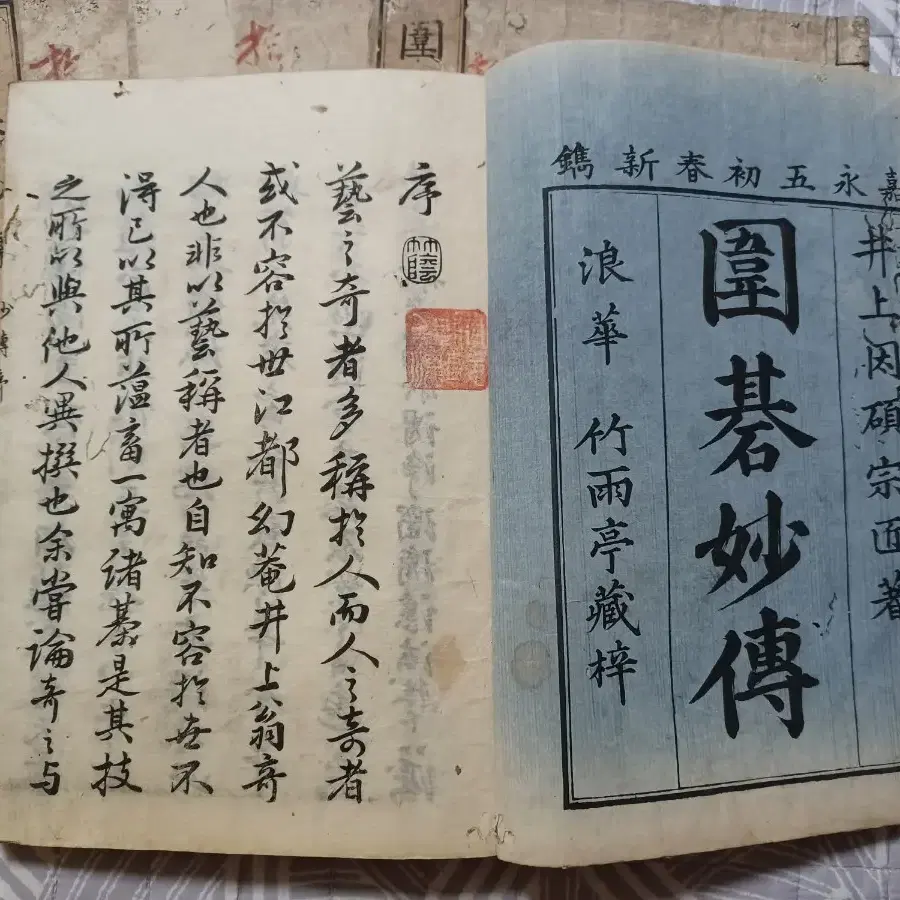 嘉永五初春新鐫
井上因碩宗匠著
圍碁妙傳
浪華 竹雨亭藏梓
序
藝之奇者多稱於人而人之奇者
或不容於世江都幻菴井上翁奇
人也非以藝稱者也自知不容於世不
得已以其所蘊畜一寓諸棊是其技
之所以與他人異撰也余嘗論奇之与
圍